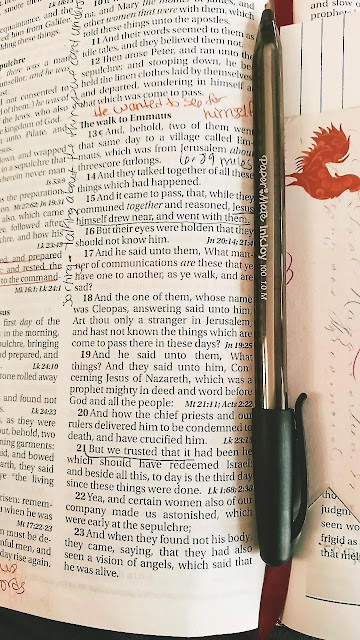 quaintance, and the
him from Galilee,
ding these things.
pulchre
there was a man
unsellor: and he was
not consented to
the Jews: who also
kingdom of God.
unto Pilate, and
down, and wrapped
in a sepulchre that
wherein never man
Is 53:9
the preparation
Mt 27:62; Jn 19:31
also, which came
followed after
chre, and how his
Lk 23:49
and prepared
and rested the
to the command-
Mk 16:1; Lk 24:1
sus
first day of the
in the morning,
pulchre, bringing
d prepared, and
Lk 24:10
tone rolled away
and found not
Lk 24:23
as they were
out, behold, two
ning garments:
id, and bowed
earth, they said
ye the living
risen: remem-
u when he was
Mt 17:22,23
n must be de-
nful men, and
day rise again.
us
ords
na, and Mary the mother of James, and
other women that were with them, which
told these things unto the apostles.
11 And their words seemed to them as
idle tales, and they believed them not.
12 Then arose Peter, and ran unto the
sepulchre; and stooping down, he beheld
the linen clothes laid by themselves,
and departed, wondering in himself at
that which was come to pass.
He wanted to see for
himself
The walk to Emmaus
13 ¶ And, behold, two of them went
that same day to a village called Em-
maus, which was from Jerusalem about
threescore furlongs.
14 And they talked together of all these
things which had happened.
15 And it came to pass, that, while they
communed together and reasoned, Jesus
himself drew near, and went with them.
16 But their eyes were holden that they
should not know him. Jn 20:14; 21:4
17 And he said unto them, What man-
ner of communications are these that ye
have one to another, as ye walk, and are
sad?
18 And the one of them, whose name
was Cleopas, answering said unto him,
Art thou only a stranger in Jerusalem,
and hast not known the things which are
come to pass there in these days? Jn 19:25
19 And he said unto them, What
things? And they said unto him, Con-
cerning Jesus of Nazareth, which was a
prophet mighty in deed and word before
God and all the people: Mt 21:11; Acts 2:22
20 And how the chief priests and our
rulers delivered him to be condemned to
death, and have crucified him. Lk 23:13
21 But we trusted that it had been he
which should have redeemed Israel:
and beside all this, to day is the third day
since these things were done. Lk 1:68; 2:38
22 Yea, and certain women also of our
company made us astonished, which
were early at the sepulchre;
23 And when they found not his body,
they came, saying, that they had also
seen a vision of angels, which said that
he was alive.
paper mate InkJoy 100 1.0 M
and slow
prophe
the
judgm
seen wo
frigid as
that mel